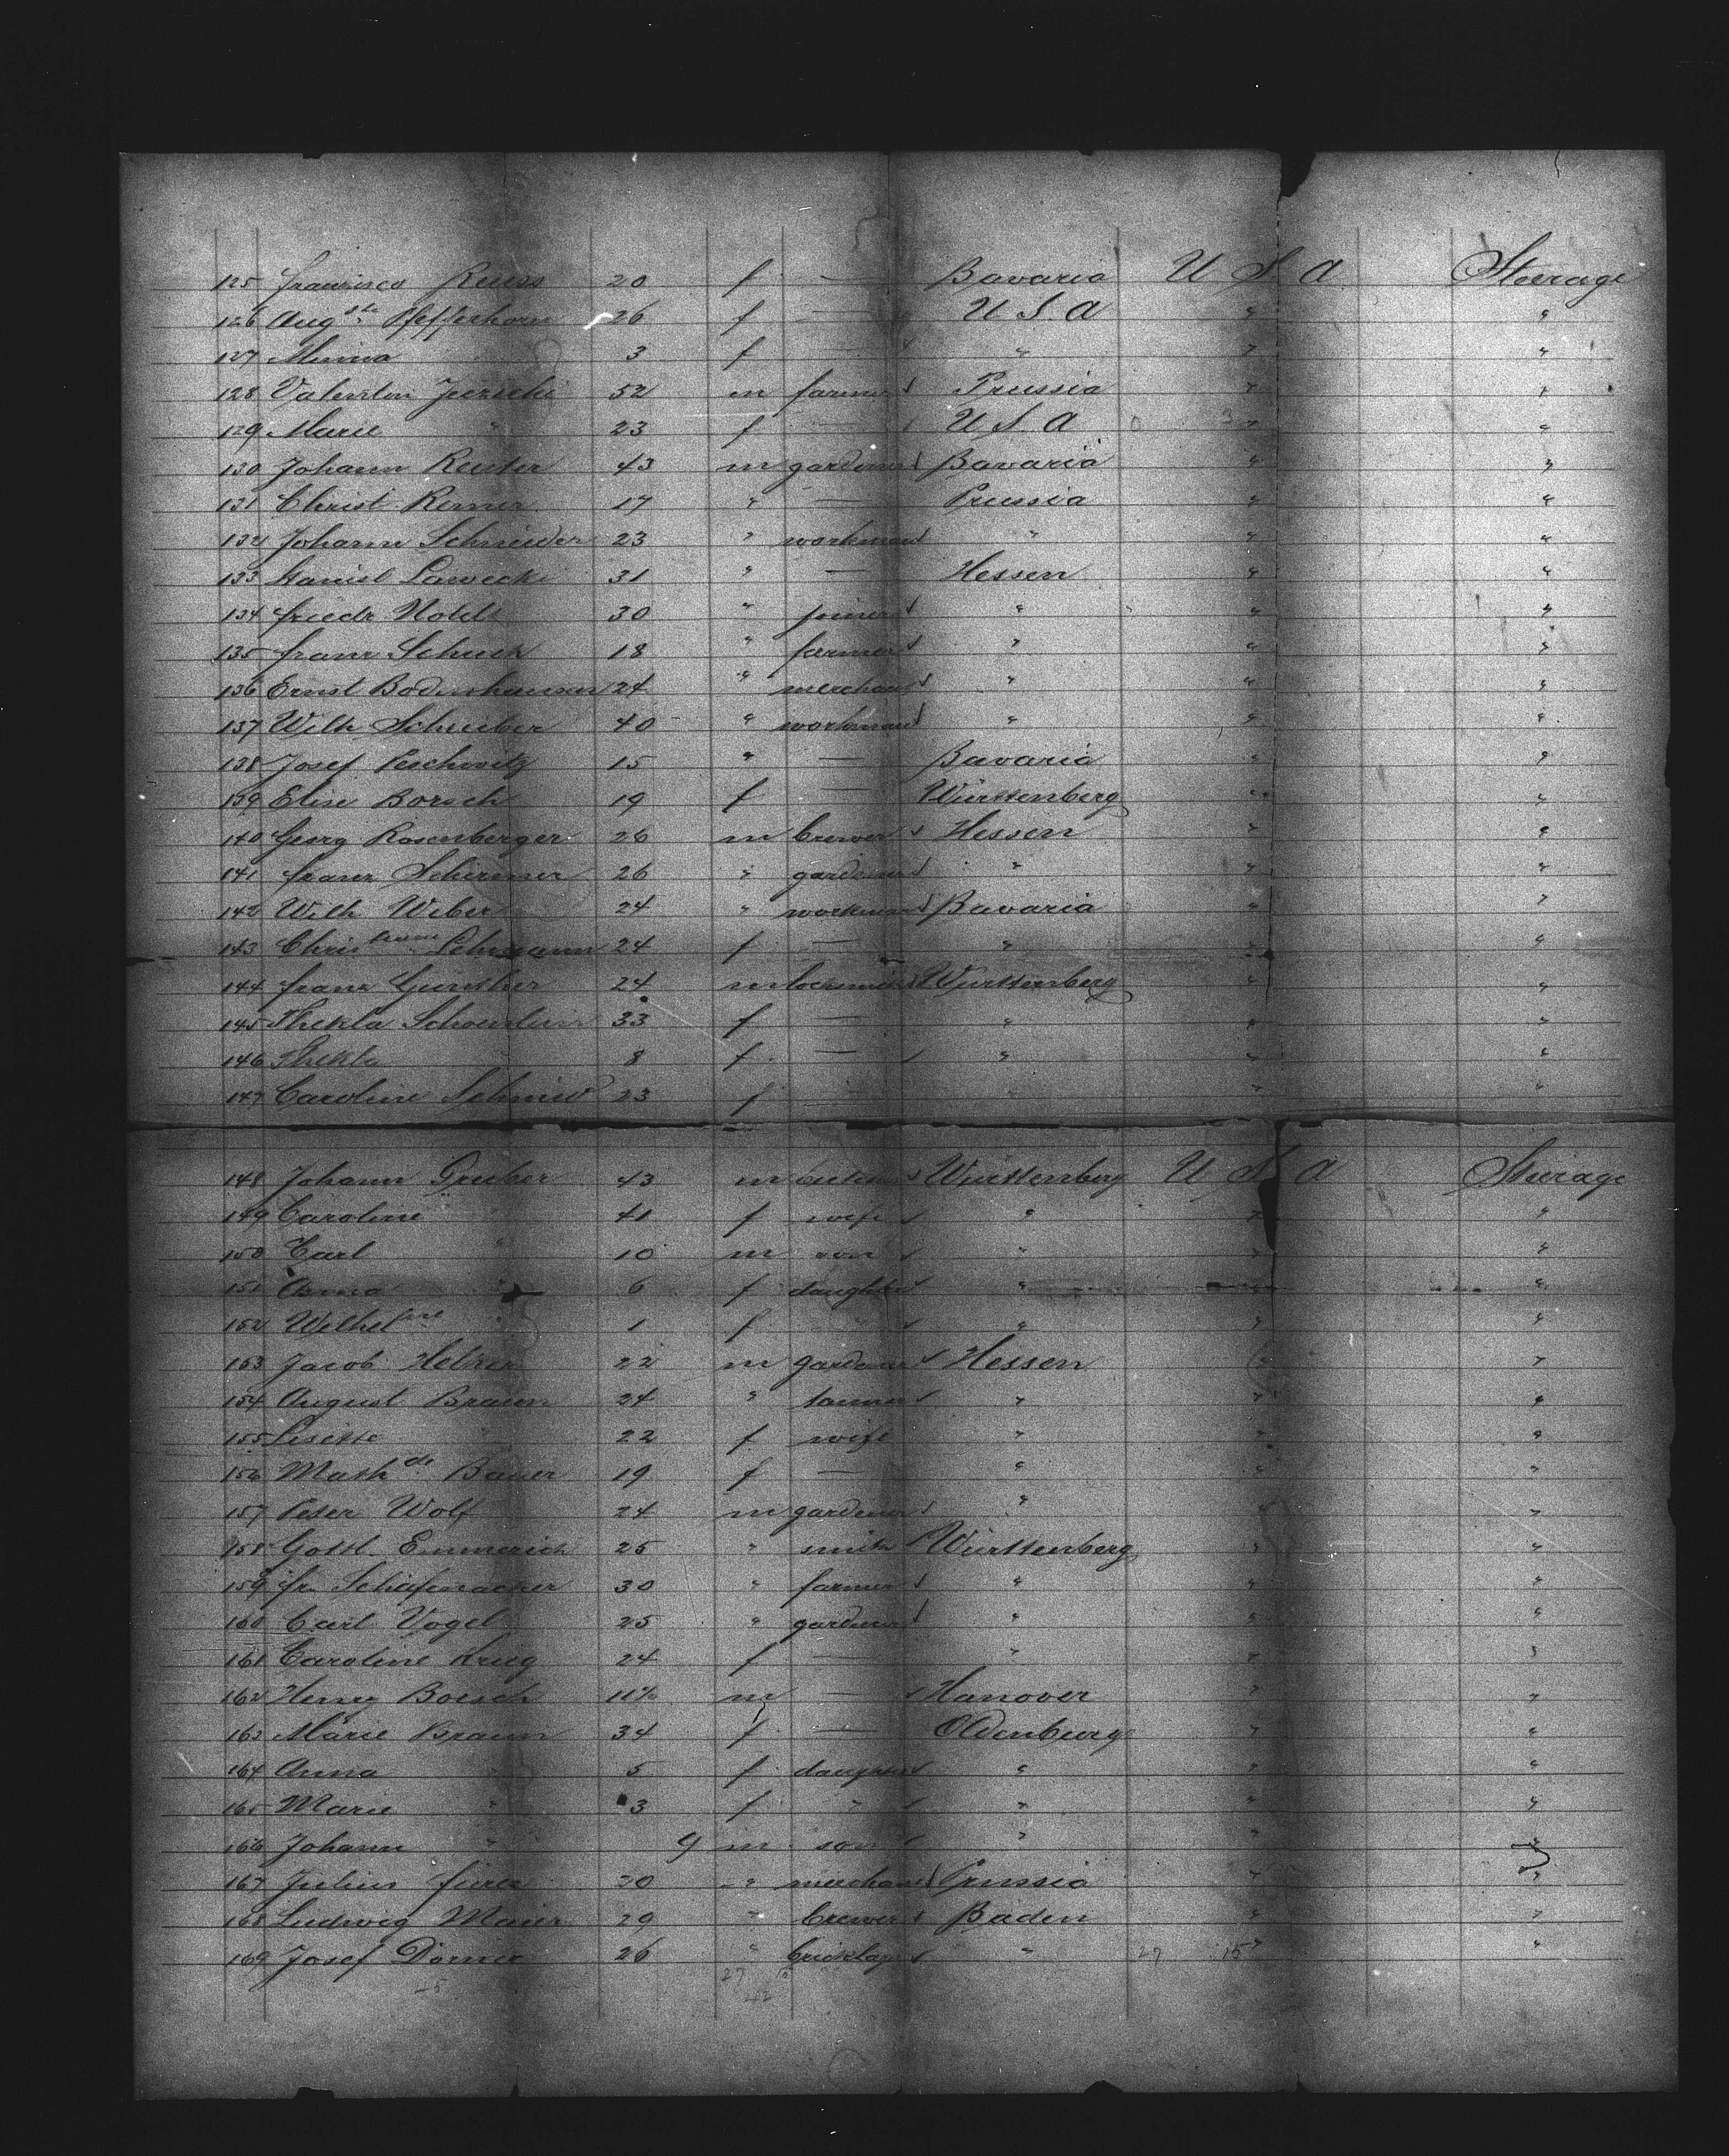 125 Franzisca Reuss 20 f — Bavaria U S A Steerage
126 Aug ste Pfefferkorn 26 f — U S A " "
127 Minna " 3 f — " " "
128 Valentin 52 m farmer Prussia " "
129 Marie " 23 f — U S A " "
130 Johann Reuter 43 m gardener Bavaria " "
131 Christ Remer 17 " — Prussia " "
132 Johann Schneider 23 " workman " " "
133 Daniel Lawecki 31 " — Hessen " "
134 Friedr. 30 " joiner " " "
135 Franz Schuch 18 " farmer " " "
136 Ernst Bodenshausen 24 " merchant " " "
137 Wilh Schreiber 40 " workman " " "
138 Josef Peschwitz 15 " — Bavaria " "
139 Elise Borsch 19 f — Württenberg " "
140 Georg Rosenberger 26 m brewer Hessen " "
141 Franz Schirmer 26 " gardener " " "
142 Wilh Weber 24 " workman Bavaria " "
143 Chris tiane Lehmann 24 f — " " "
144 Franz Günther 24 m locksmith Württenberg " "
145 Thekla Schoenlein 33 f — " " "
146 Thekla " 8 f — " " "
147 Caroline Schmid 23 f — " " "
148 Johann Gruber 43 m Württenberg U S A Steerage
149 Caroline " 41 f wife " " "
150 Carl " 10 m son " " "
151 Anna " 6 f daughter " " "
152 Wilhel ine " 1 f " " " "
153 Jacob 22 m gardener Hessen " "
154 August Braun 24 " tanner " " "
155 Lisette " 22 f wife " " "
156 Math de Bauer 19 f — " " "
157 Peter Wolf 24 m gardener " " "
158 Gottl. Emmerich 25 " smith Württenberg " "
159 Fr. Schäfenacker 30 " farmer " " "
160 Carl Vogel 25 " gardener " " "
161 Caroline Krieg 24 f — " " "
162 Henry Boesch m — Hanover " "
163 Marie Braun 34 f — Oldenburg " "
164 Anna " 5 f daughter " " "
165 Marie " 3 f " " " "
166 Johann " 9 m son " " "
167 Julius 30 " merchant Prussia " "
168 Ludwig Maier 29 " brewer Baden " "
169 Josef Dorner 26 " bricklayer " 27 15 " "
45 27 15
42